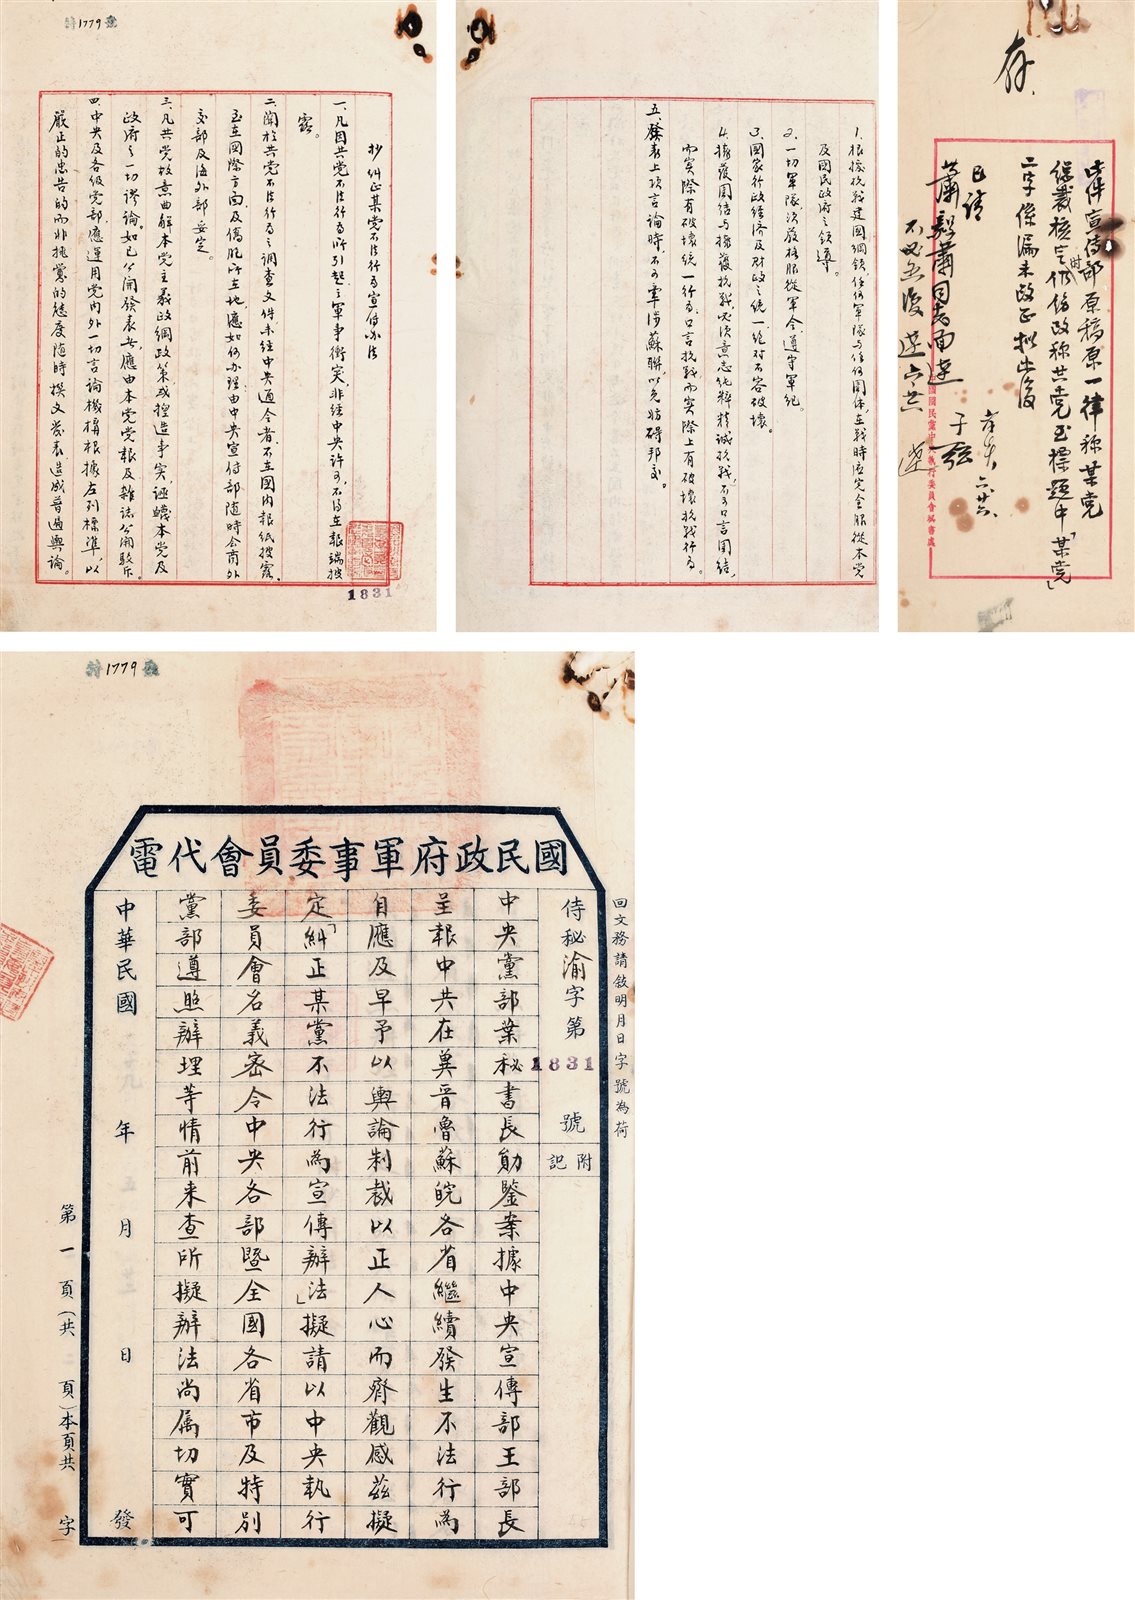 特1779號
抄糾正某党不法行為宣传办法
一、凡因共党不法行为所引起之軍事衝突，非经中央许可，不得在報端披
露。
二、關於共党不法行为之調查文件未经中央通令者，不在國内報纸披露。
至在國際方面及僑胞所在地，應如何办理，由中央宣传部随時会商外
交部及海外部妥定。
三、凡共党故意曲解本党主義政綱政策或捏造事实，誣衊本党及
政府之一切謬論。如已公開發表者，應由本党党報及雜誌公開駁斥。
四、中央及各级党部，應運用党内外一切言論機構根據左列標準，以
嚴正的忠告的而非挑釁的態度随時撰文发表造成普遍輿論。
1831
1.根據抗戰建國綱領，任何軍隊与任何團体，在戰時應完全服從本党
及國民政府之领導。
2.一切軍隊，須嚴格服從軍令，遵守軍纪。
3.國家行政经济及财政之统一，绝对不容破壞。
4.擁護團结与擁護抗戰，必須意志纯粹精诚抗戰，不可口言團结，
而实際有破壞统一行为，口言抗戰而实際上有破壞抗戰行为。
五、發表上项言論時，不可牵涉蘇聯，以免妨碍邦交。
存
此件宣傳部原稿原一律称某党
经裁核定時仍修改称共党至標題中「某党」
二字係漏未改正拟出後
已請
蕭毅肅同志面達
不必公復
國國民黨中央執行委員會秘書處
特1779號
國民政府軍事委員會代電
回文務請敘明月日字號為荷
侍秘渝字第1831號
附記
中央黨部葉秘書長勛鑒案據中央宣傳部王部長
呈報中共在冀晉魯蘇皖各省繼續發生不法行為
自應及早予以輿論制裁以正人心而齊觀感茲擬
定「糾正某黨不法行為宣傳辦法」擬請以中央執行
委員會名義密令中央各部暨全國各省市及特別
黨部遵照辦理等情前來查所擬辦法尚属切實可
中華民國廿九年五月廿三日發
第一頁（共二頁）本頁共字